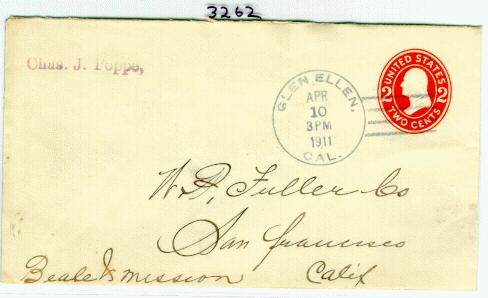 3262
Chas. J. Poppe,
UNITED STATES
2 2
TWO CENTS
GLEN ELLEN,
APR
10
3 PM
1911
CAL.
W. P. Fuller Co
San Francisco
Beale & Mission Calif